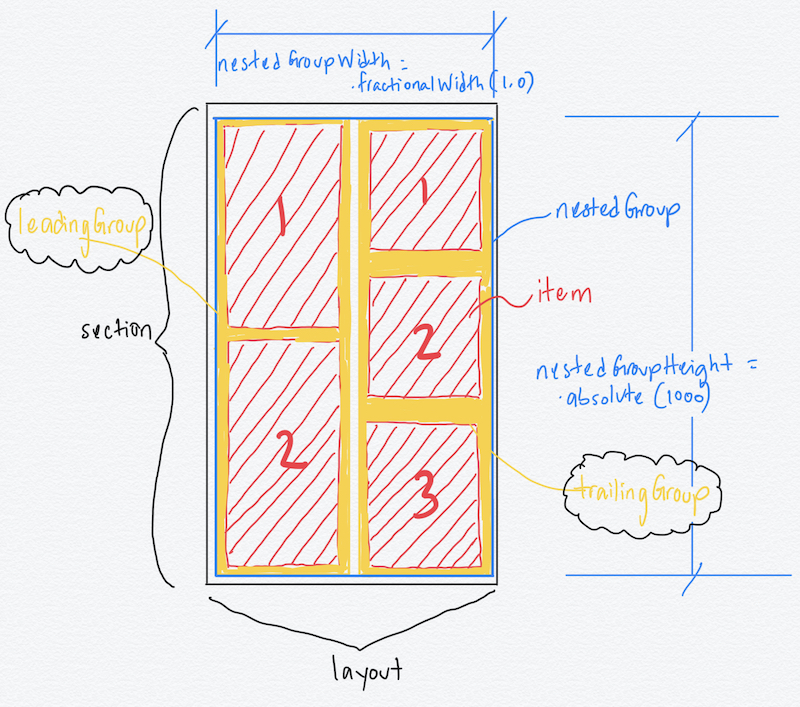 nestedGroupWidth =
.fractionalWidth(1,0)
1
1
leadingGroup
nestedGroup
item
section
2
nestedGroupHeight =
.absolute(1000)
2
3
trailingGroup
layout